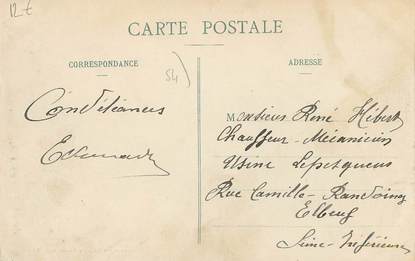 12 €
CARTE POSTALE
CORRESPONDANCE
54)
ADRESSE
Condoléances
Edouard
Monsieur René Hébert
Chauffeur - Mécanicien
Usine Lepesqueur
Rue Camille - Randoing
Elbeuf
Seine-Inférieure